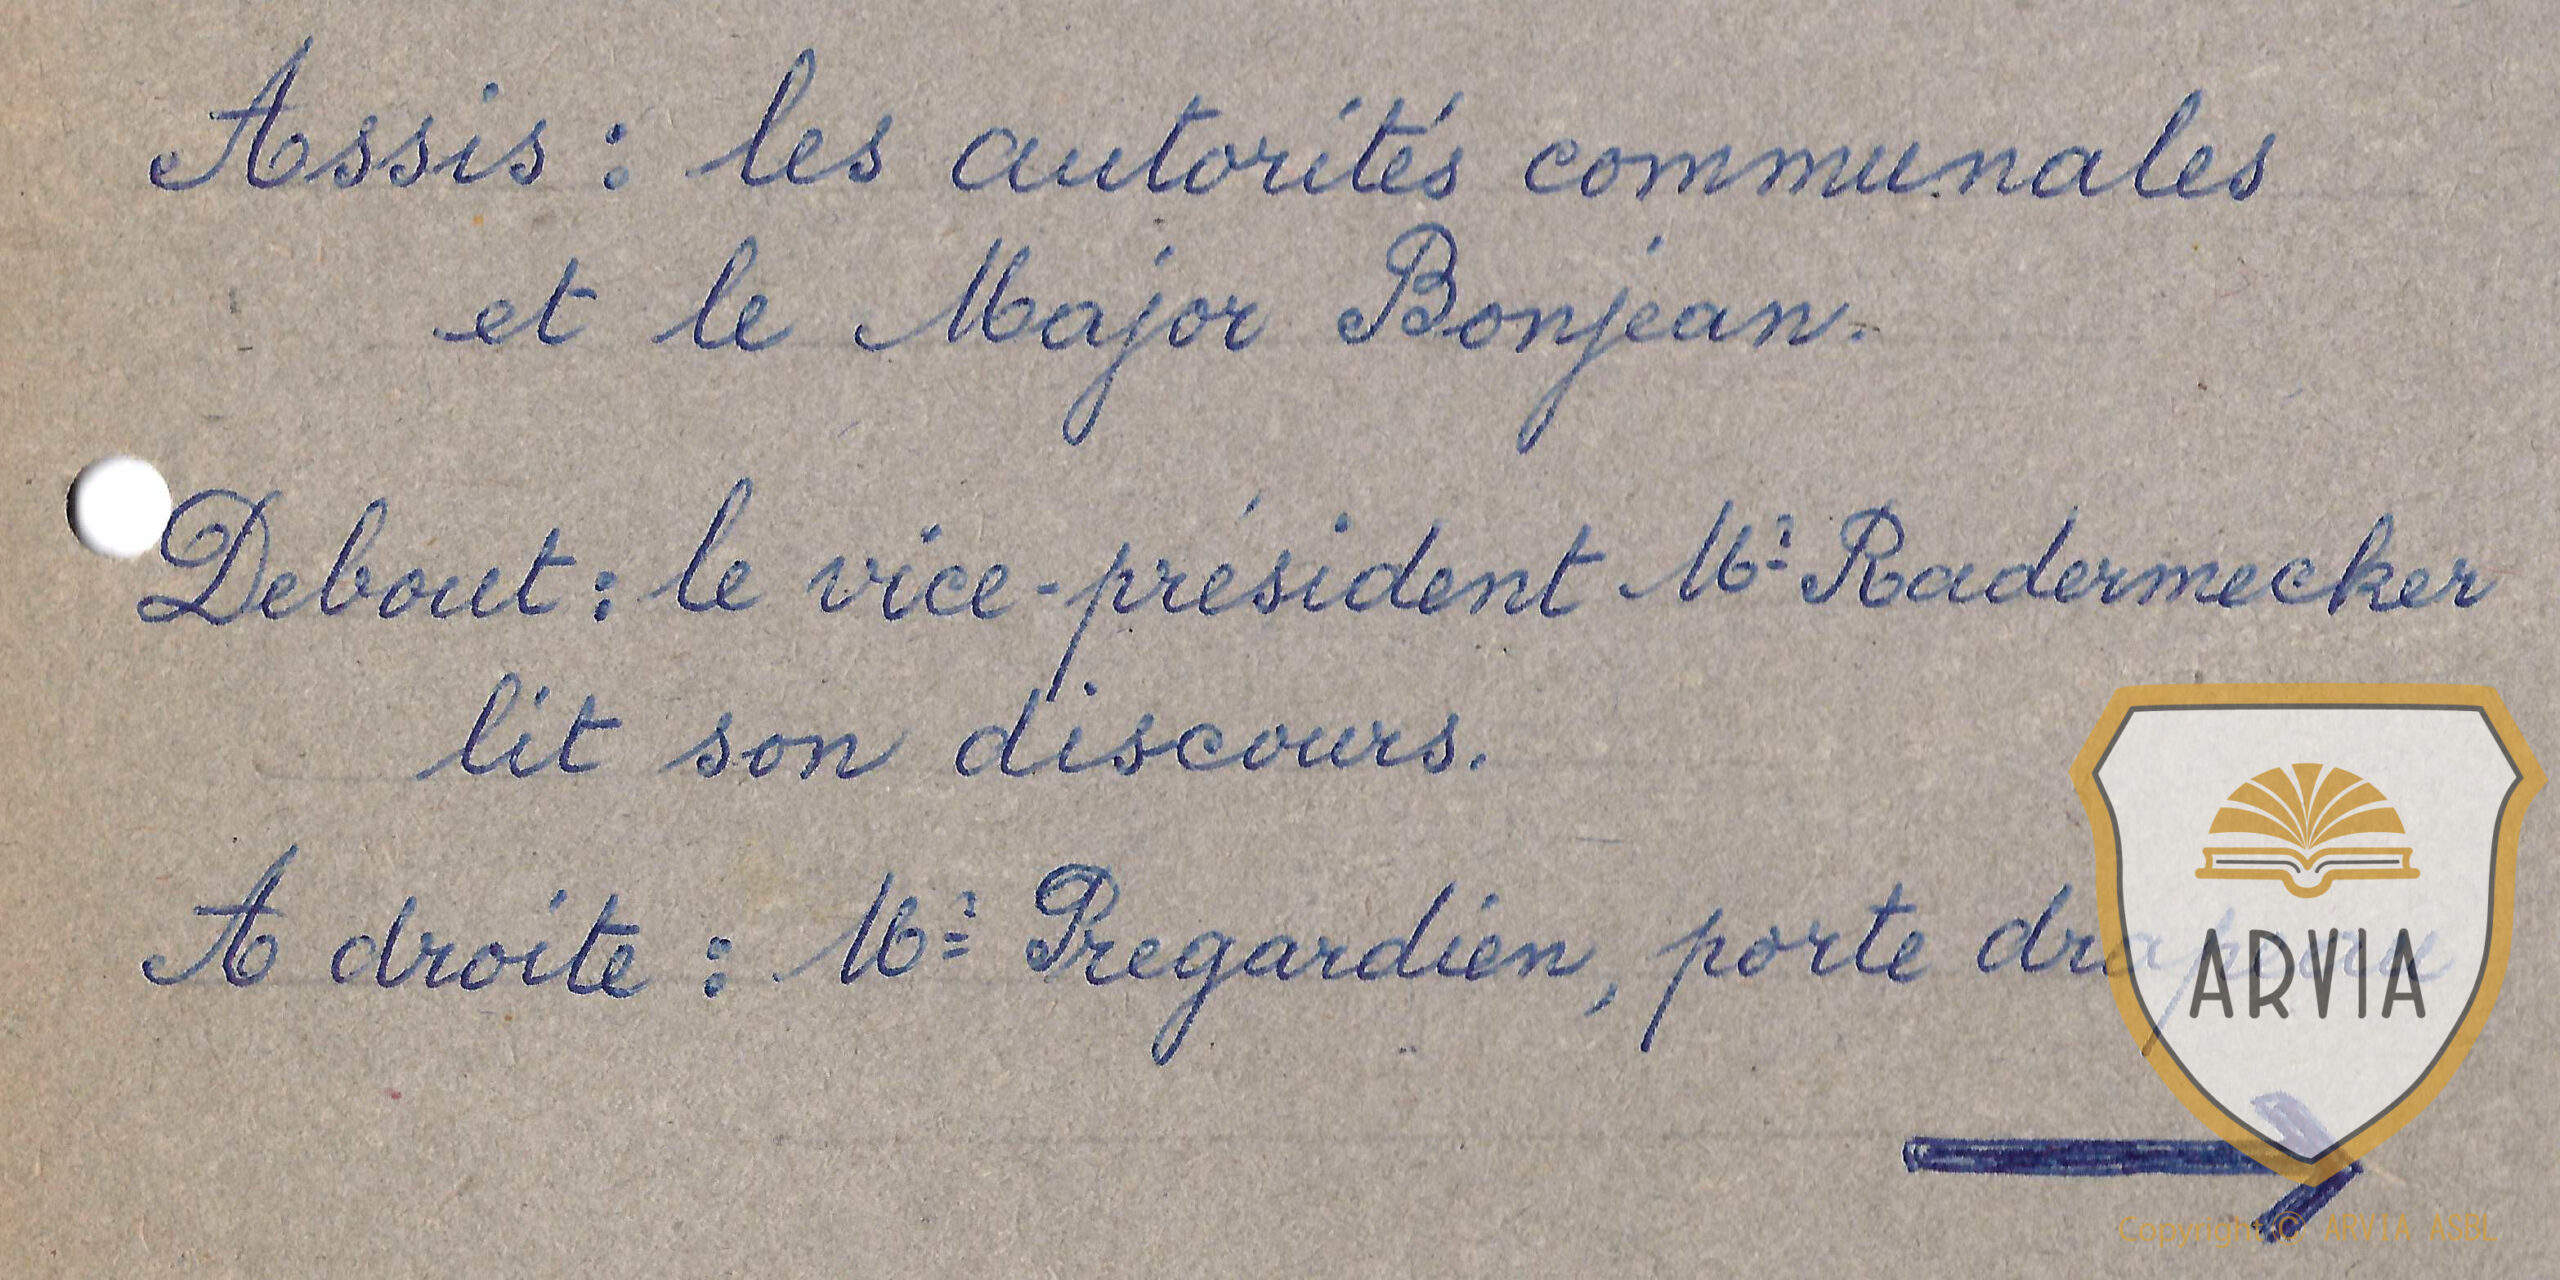 Assis : les autorités communales
et le Major Bonjean.
Debout : le vice-président Mr Radermecker
lit son discours.
A droite : Mr Pregardien, porte drapeau
ARVIA
Copyright © ARVIA ASBL